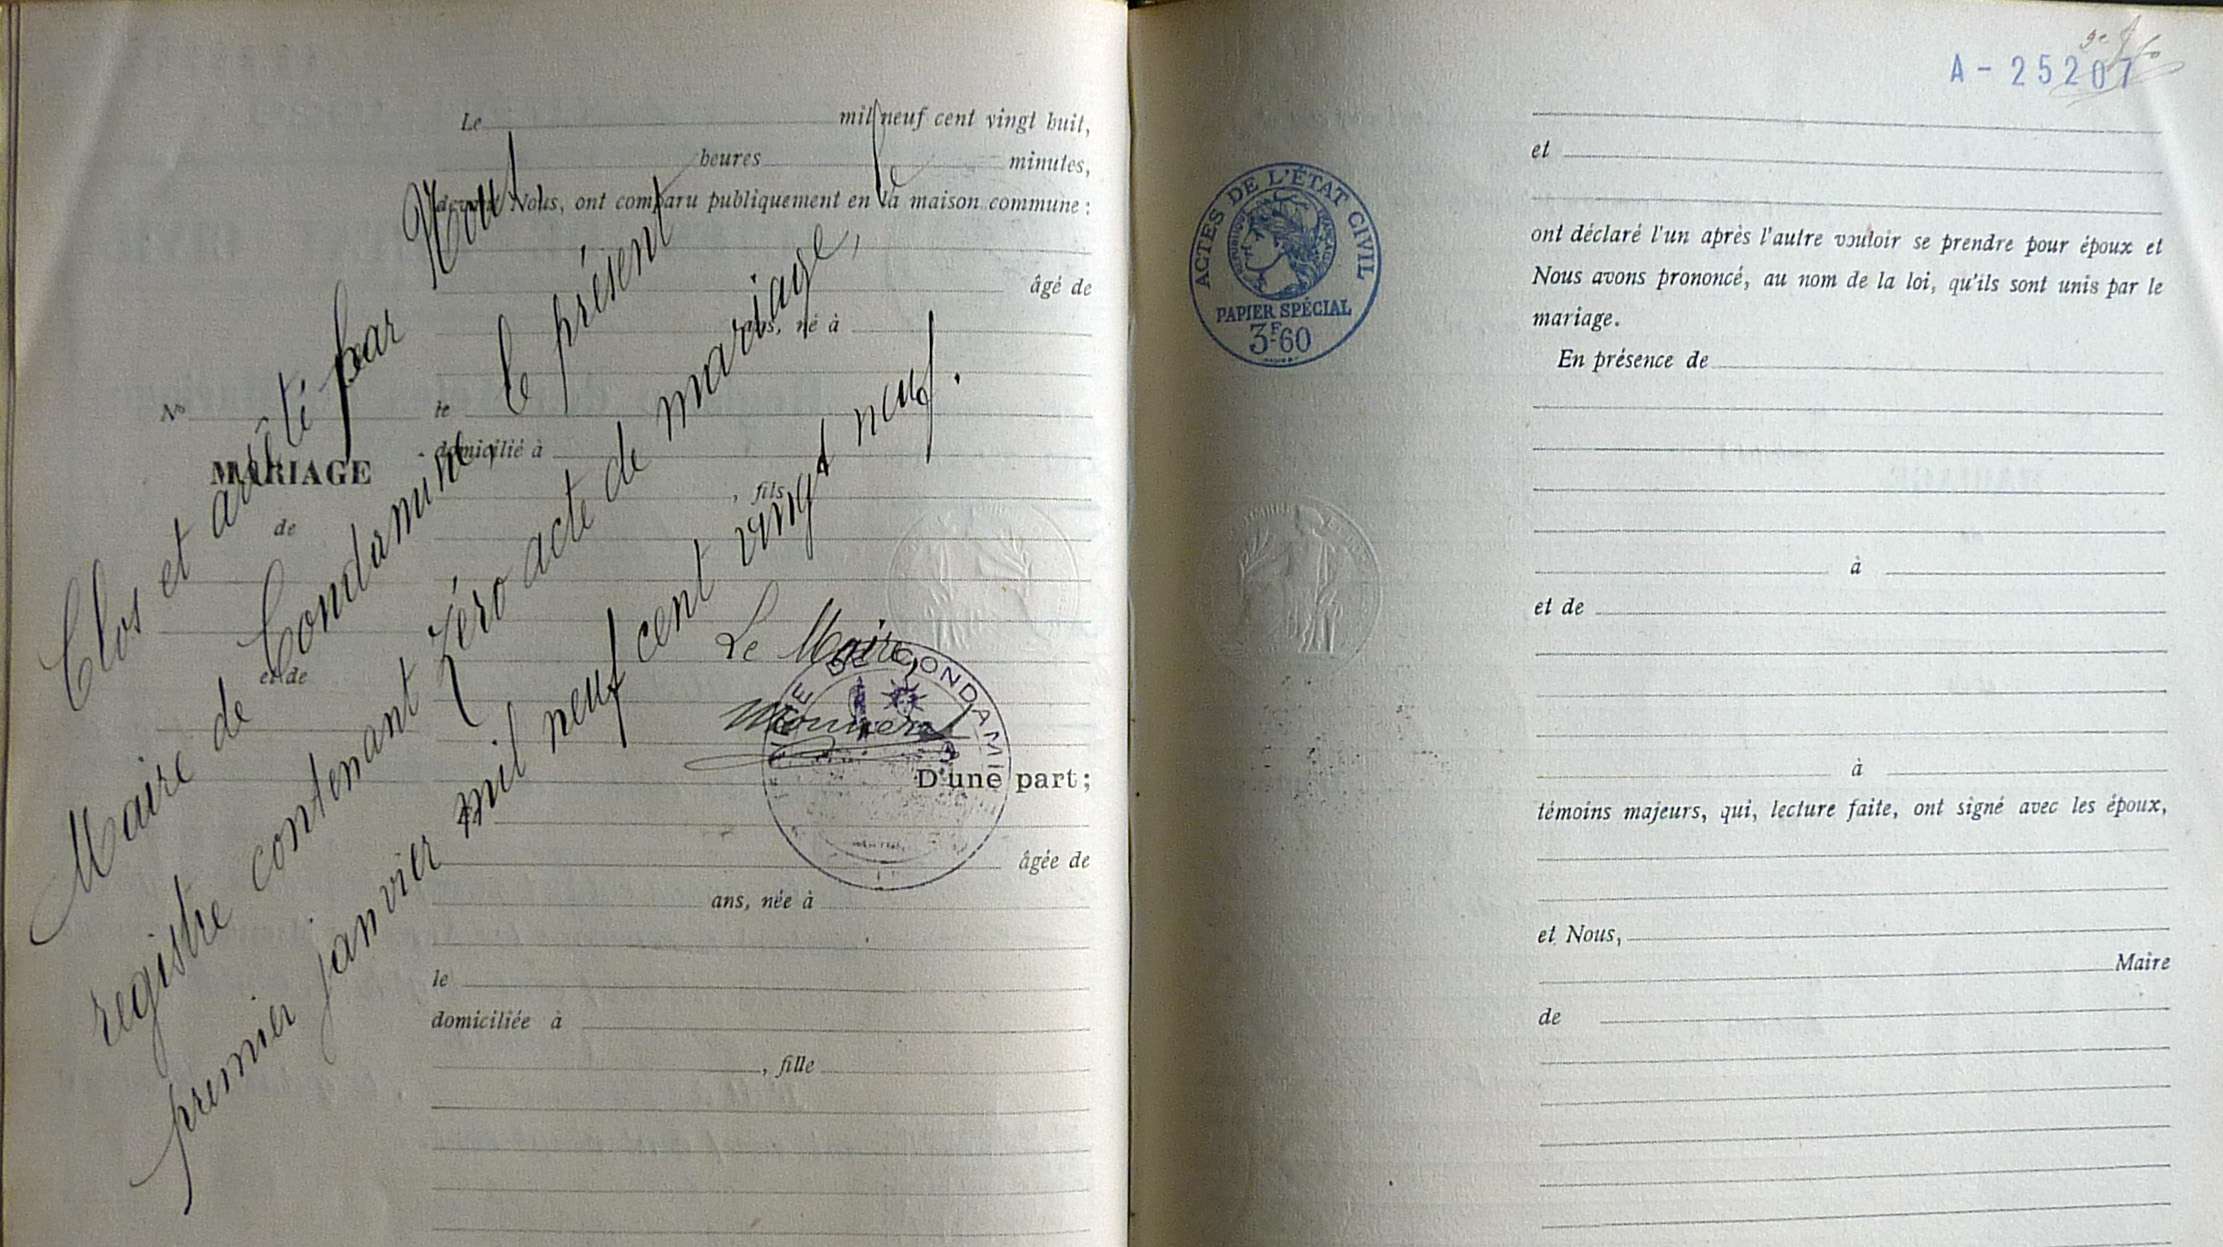 Le mil neuf cent vingt huit,
heures minutes,
devant Nous, ont comparu publiquement en la maison commune :
âgé de
ans, né à
No
le
MARIAGE
domicilié à
, fils
de
et de
D'une part;
âgée de
ans, née à
le
domiciliée à
, fille
Clos et arrêté par Nous,
Maire de Condamine, le présent
registre contenant zéro acte de mariage, le
premier janvier mil neuf cent vingt neuf.
Le Maire,
DE CONDAMI
A - 25207
et
ACTES DE L'ÉTAT CIVIL
RÉPUBLIQUE FRANÇAISE
PAPIER SPÉCIAL
3F60
ont déclaré l'un après l'autre vouloir se prendre pour époux et
Nous avons prononcé, au nom de la loi, qu'ils sont unis par le
mariage.
En présence de
à
et de
à
témoins majeurs, qui, lecture faite, ont signé avec les époux,
et Nous,
Maire
de